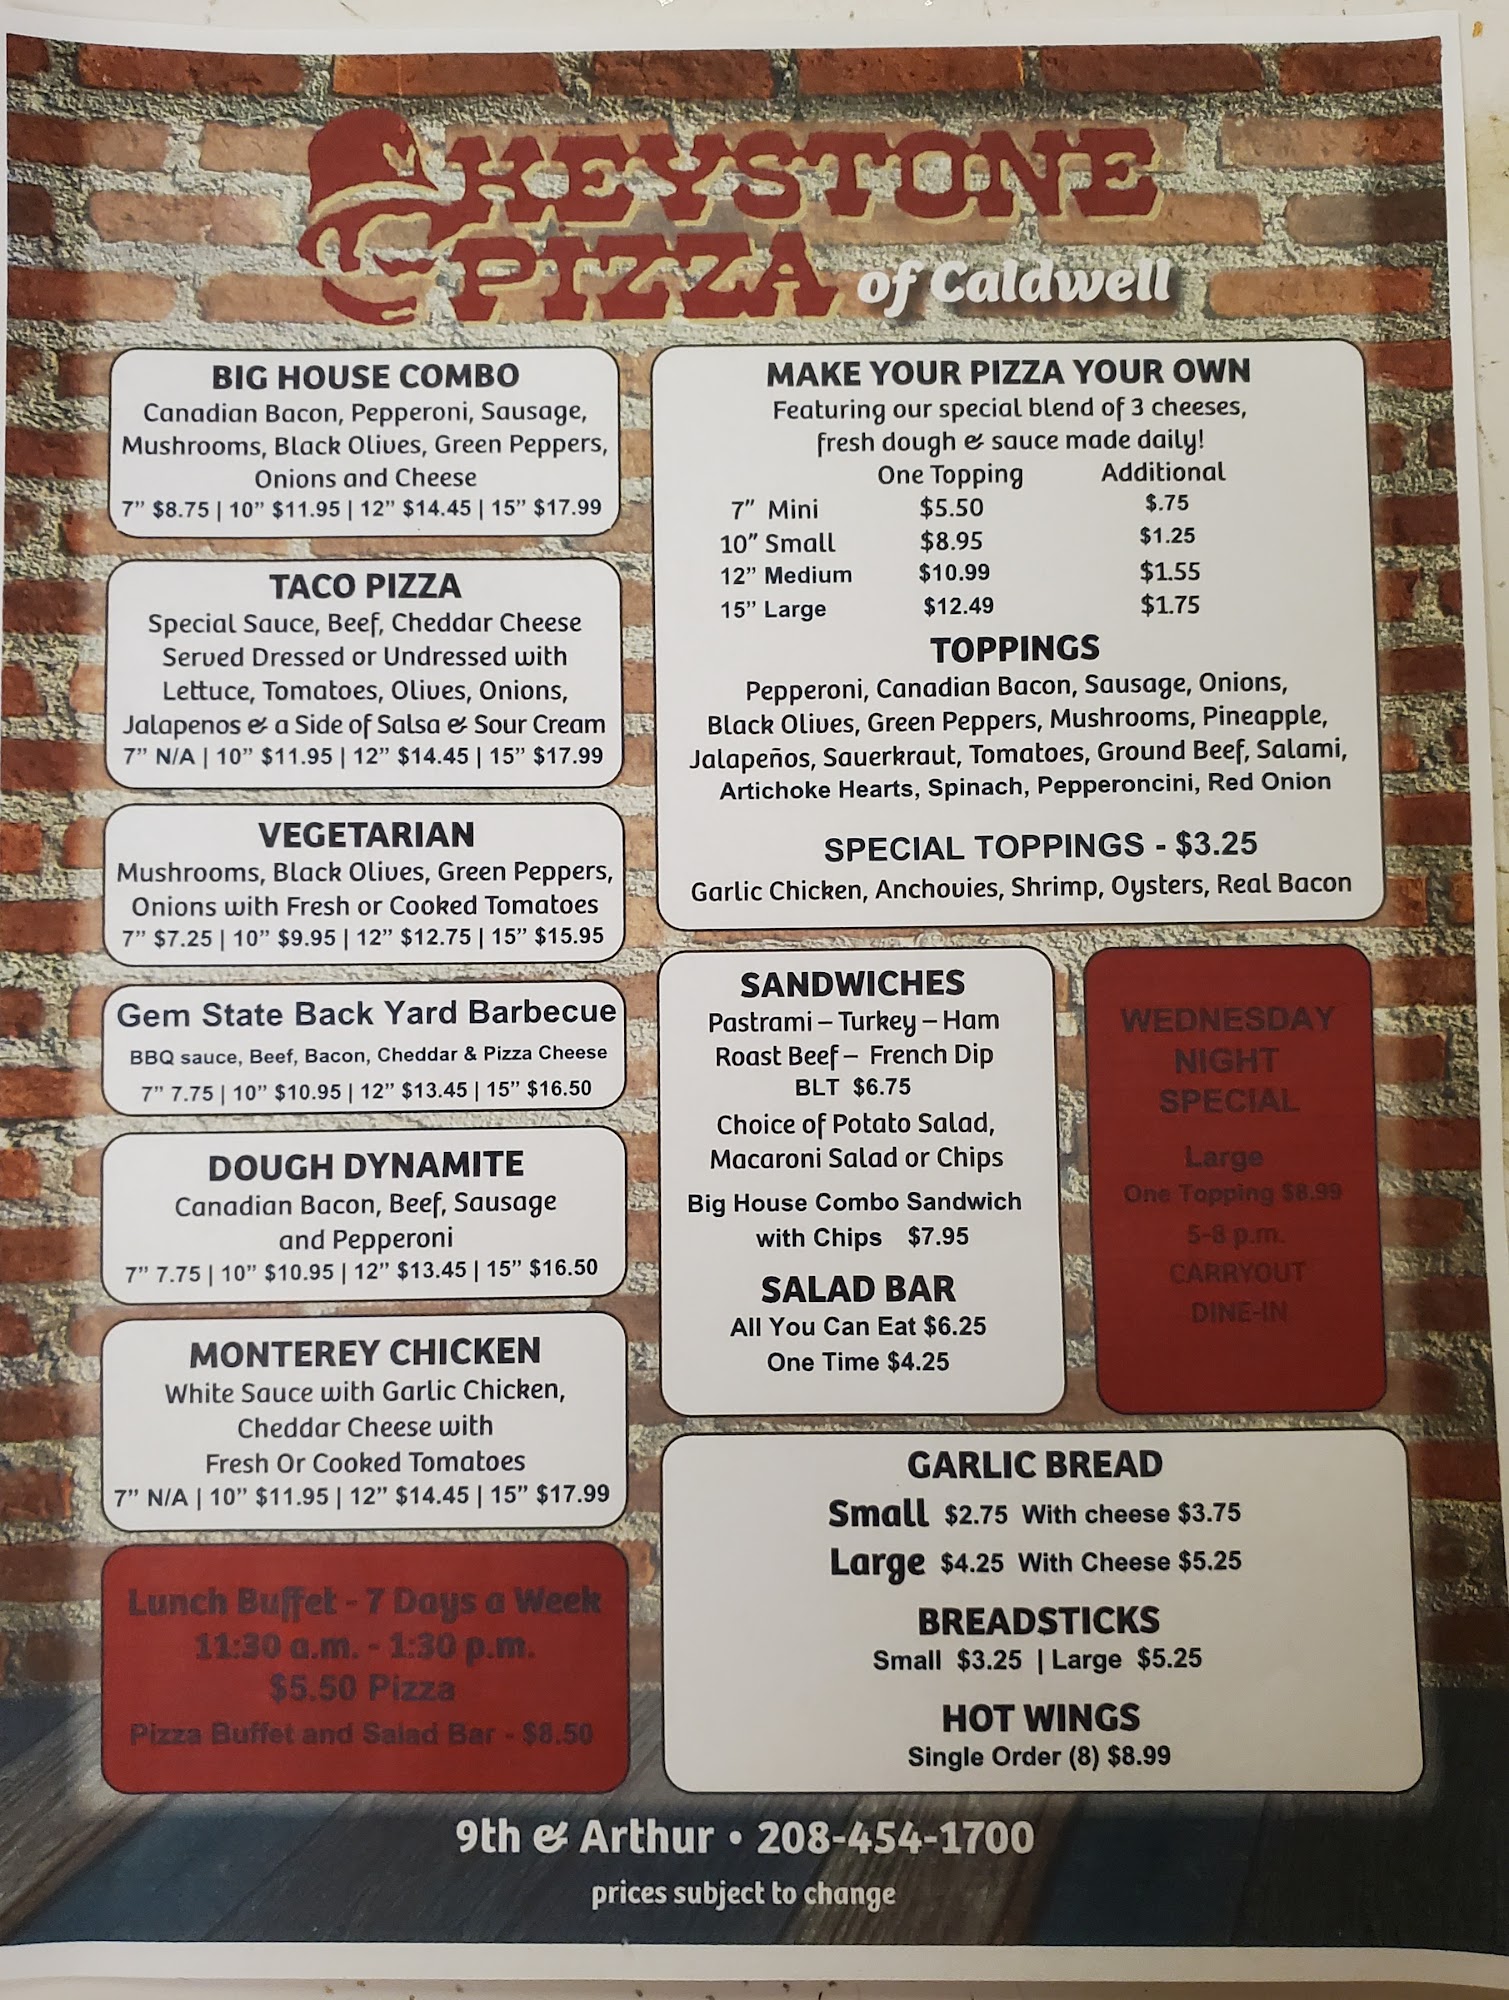 KEYSTONE
PIZZA of Caldwell
BIG HOUSE COMBO
Canadian Bacon, Pepperoni, Sausage,
Mushrooms, Black Olives, Green Peppers,
Onions and Cheese
7” $8.75 | 10” $11.95 | 12” $14.45 | 15” $17.99
TACO PIZZA
Special Sauce, Beef, Cheddar Cheese
Served Dressed or Undressed with
Lettuce, Tomatoes, Olives, Onions,
Jalapenos & a Side of Salsa & Sour Cream
7” N/A | 10” $11.95 | 12” $14.45 | 15” $17.99
VEGETARIAN
Mushrooms, Black Olives, Green Peppers,
Onions with Fresh or Cooked Tomatoes
7” $7.25 | 10” $9.95 | 12” $12.75 | 15” $15.95
Gem State Back Yard Barbecue
BBQ sauce, Beef, Bacon, Cheddar & Pizza Cheese
7” 7.75 | 10” $10.95 | 12” $13.45 | 15” $16.50
DOUGH DYNAMITE
Canadian Bacon, Beef, Sausage
and Pepperoni
7” 7.75 | 10” $10.95 | 12” $13.45 | 15” $16.50
MONTEREY CHICKEN
White Sauce with Garlic Chicken,
Cheddar Cheese with
Fresh Or Cooked Tomatoes
7” N/A | 10” $11.95 | 12” $14.45 | 15” $17.99
Lunch Buffet - 7 Days a Week
11:30 a.m. - 1:30 p.m.
$5.50 Pizza
Pizza Buffet and Salad Bar - $8.50
MAKE YOUR PIZZA YOUR OWN
Featuring our special blend of 3 cheeses,
fresh dough & sauce made daily!
One Topping Additional
7” Mini $5.50 $.75
10” Small $8.95 $1.25
12” Medium $10.99 $1.55
15” Large $12.49 $1.75
TOPPINGS
Pepperoni, Canadian Bacon, Sausage, Onions,
Black Olives, Green Peppers, Mushrooms, Pineapple,
Jalapeños, Sauerkraut, Tomatoes, Ground Beef, Salami,
Artichoke Hearts, Spinach, Pepperoncini, Red Onion
SPECIAL TOPPINGS - $3.25
Garlic Chicken, Anchovies, Shrimp, Oysters, Real Bacon
SANDWICHES
Pastrami – Turkey – Ham
Roast Beef – French Dip
BLT $6.75
Choice of Potato Salad,
Macaroni Salad or Chips
Big House Combo Sandwich
with Chips $7.95
SALAD BAR
All You Can Eat $6.25
One Time $4.25
WEDNESDAY
NIGHT
SPECIAL
Large
One Topping $8.99
5-8 p.m.
CARRYOUT
DINE-IN
GARLIC BREAD
Small $2.75 With cheese $3.75
Large $4.25 With Cheese $5.25
BREADSTICKS
Small $3.25 | Large $5.25
HOT WINGS
Single Order (8) $8.99
9th & Arthur • 208-454-1700
prices subject to change